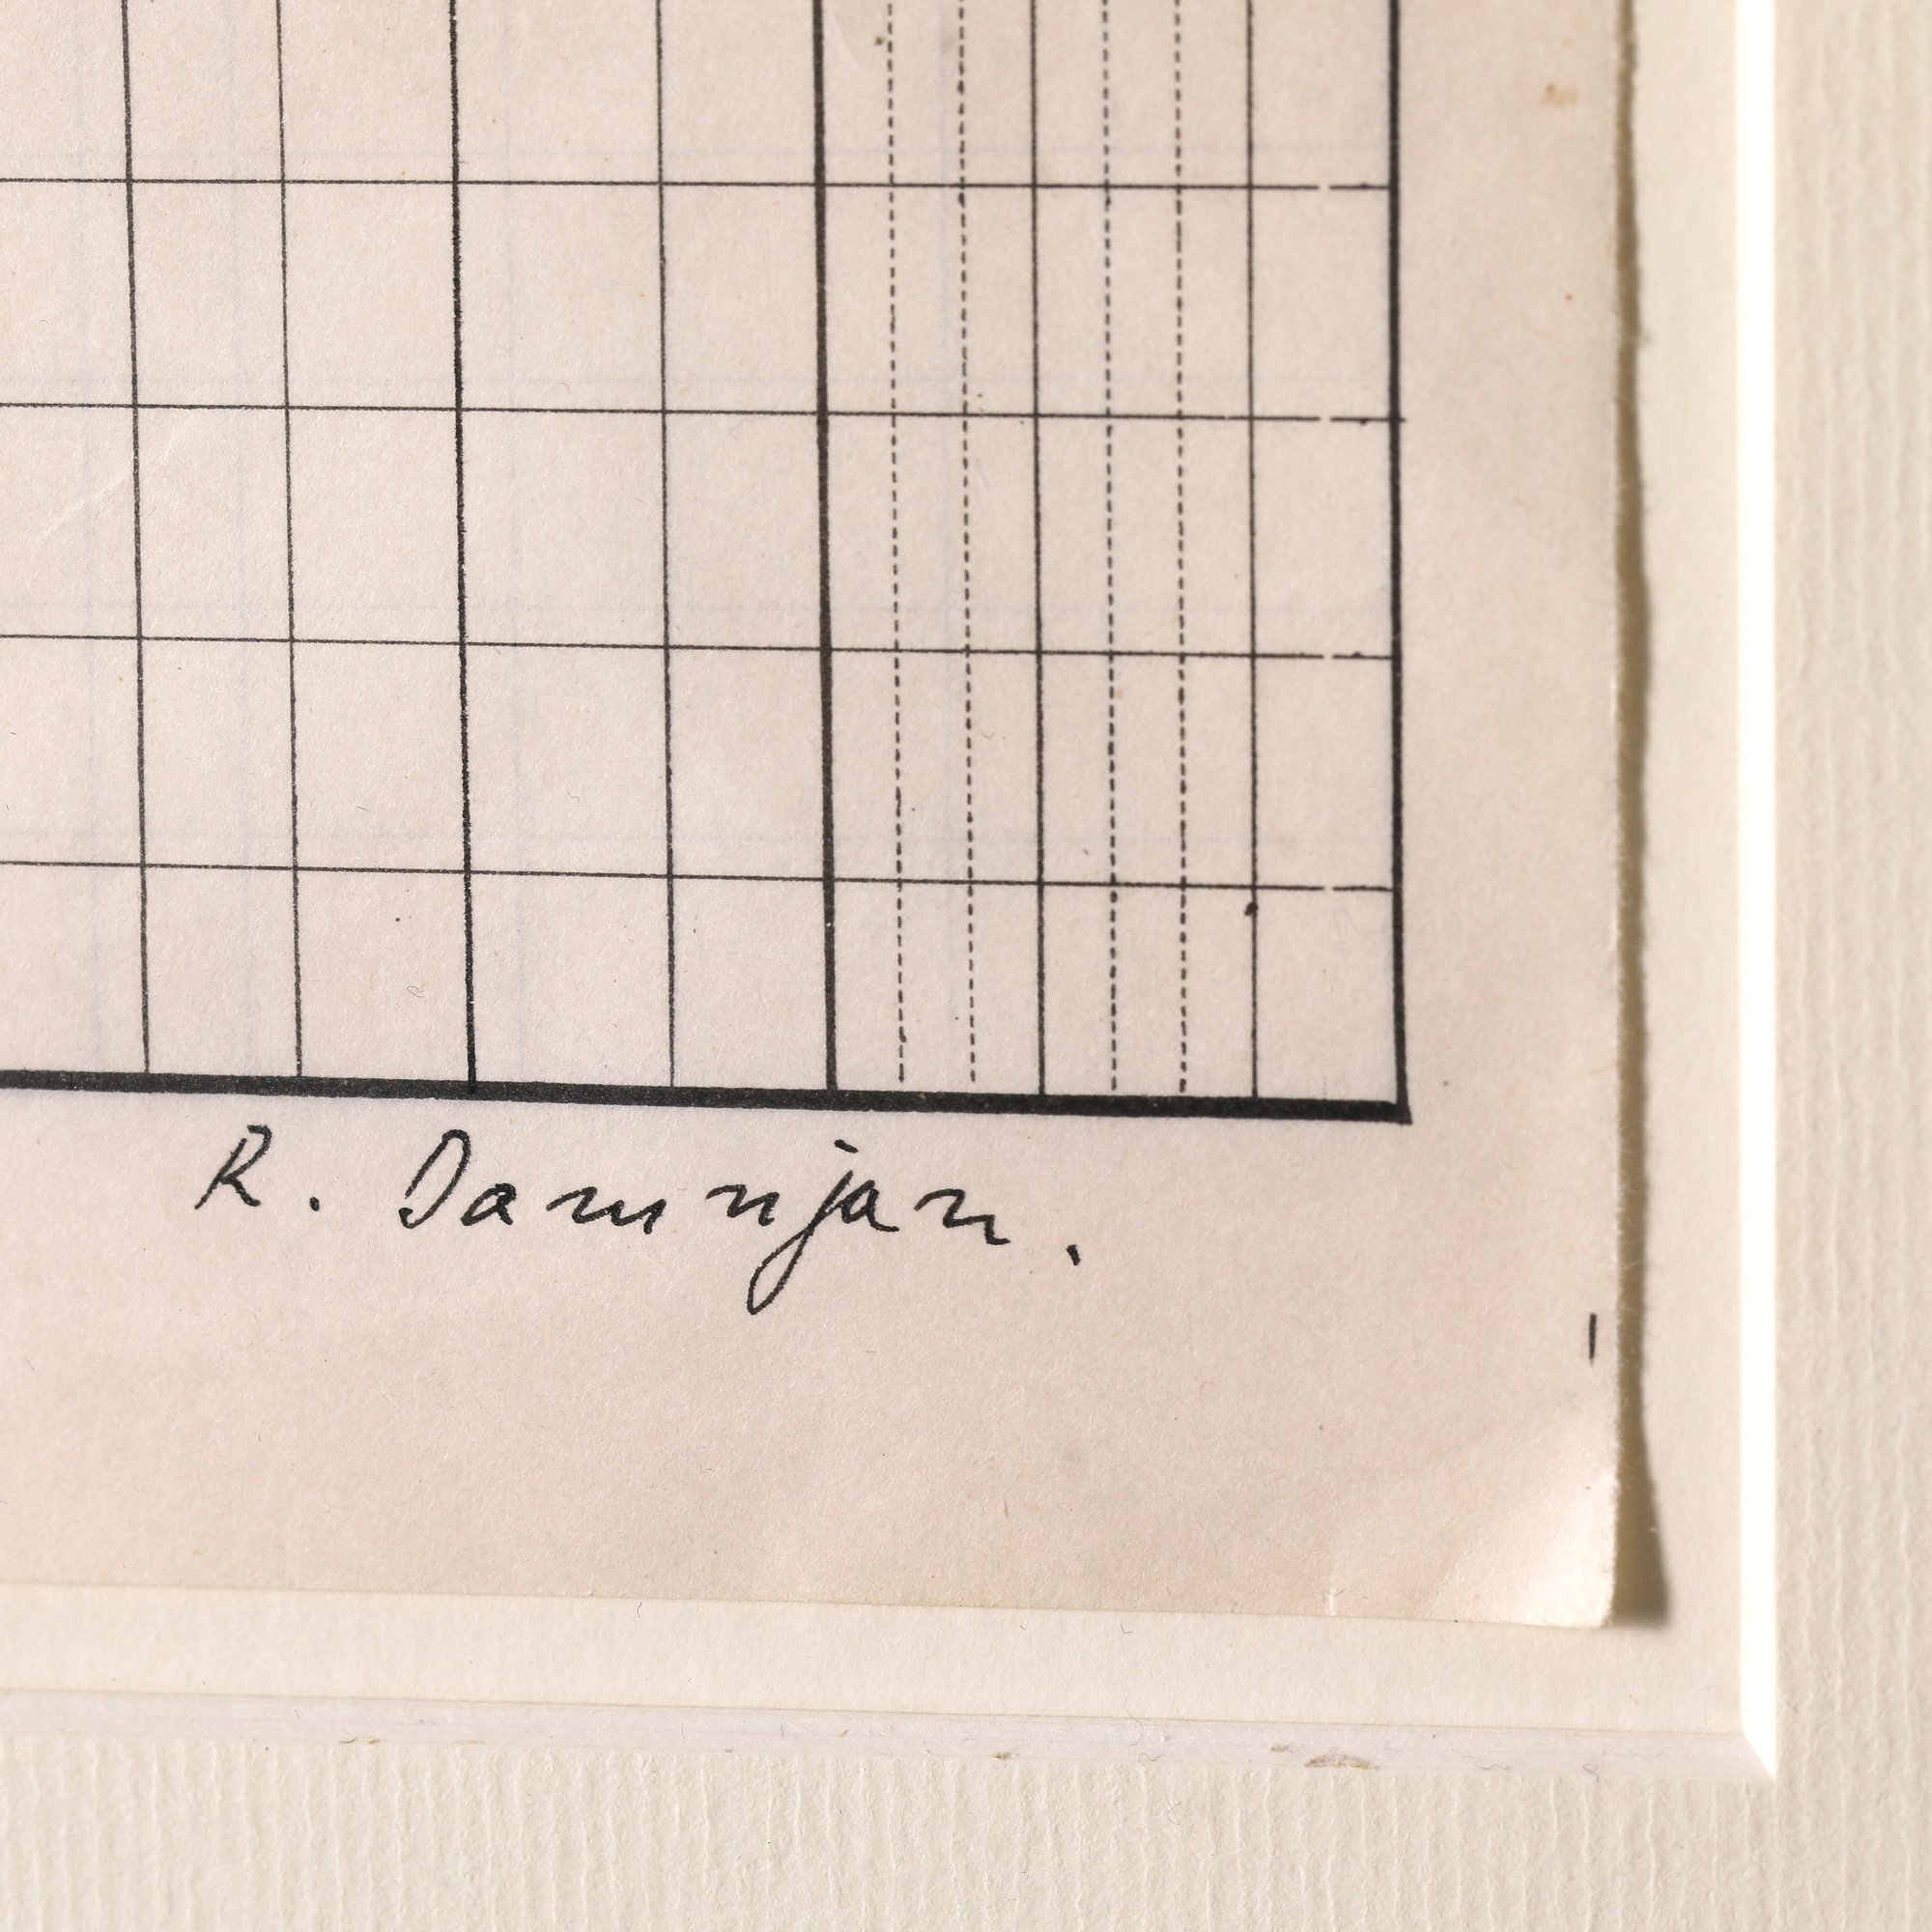 R. Damnjan.